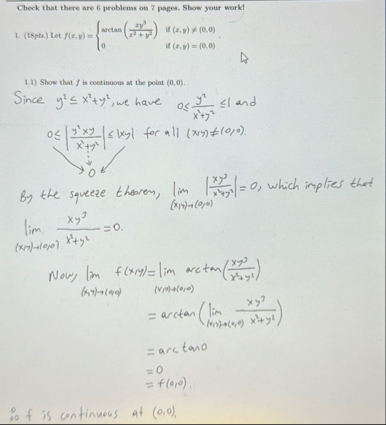 Check that there are 6 problems on 7 pages. Show your work!
1. (18pts.) Let f(x, y) = { arctan(xy³/(x² + y²)) if (x, y) ≠ (0, 0)
0 if (x, y) = (0, 0)
1.1) Show that f is continuous at the point (0, 0).
Since y² ≤ x²+y², we have 0 ≤ y²/(x²+y²) ≤ 1 and
0 ≤ |y²xy/(x²+y²)| ≤ |xy| for all (x,y) ≠ (0,0).
0
By the squeeze theorem, lim (x,y)→(0,0) |xy³/(x²+y²)| = 0, which implies that
lim (x,y)→(0,0) xy³/(x²+y²) = 0.
Now, lim (x,y)→(0,0) f(x,y) = lim (x,y)→(0,0) arctan(xy³/(x²+y²))
= arctan(lim (x,y)→(0,0) xy³/(x²+y²))
= arctan0
= 0
= f(0,0).
∴ f is continuous at (0,0).